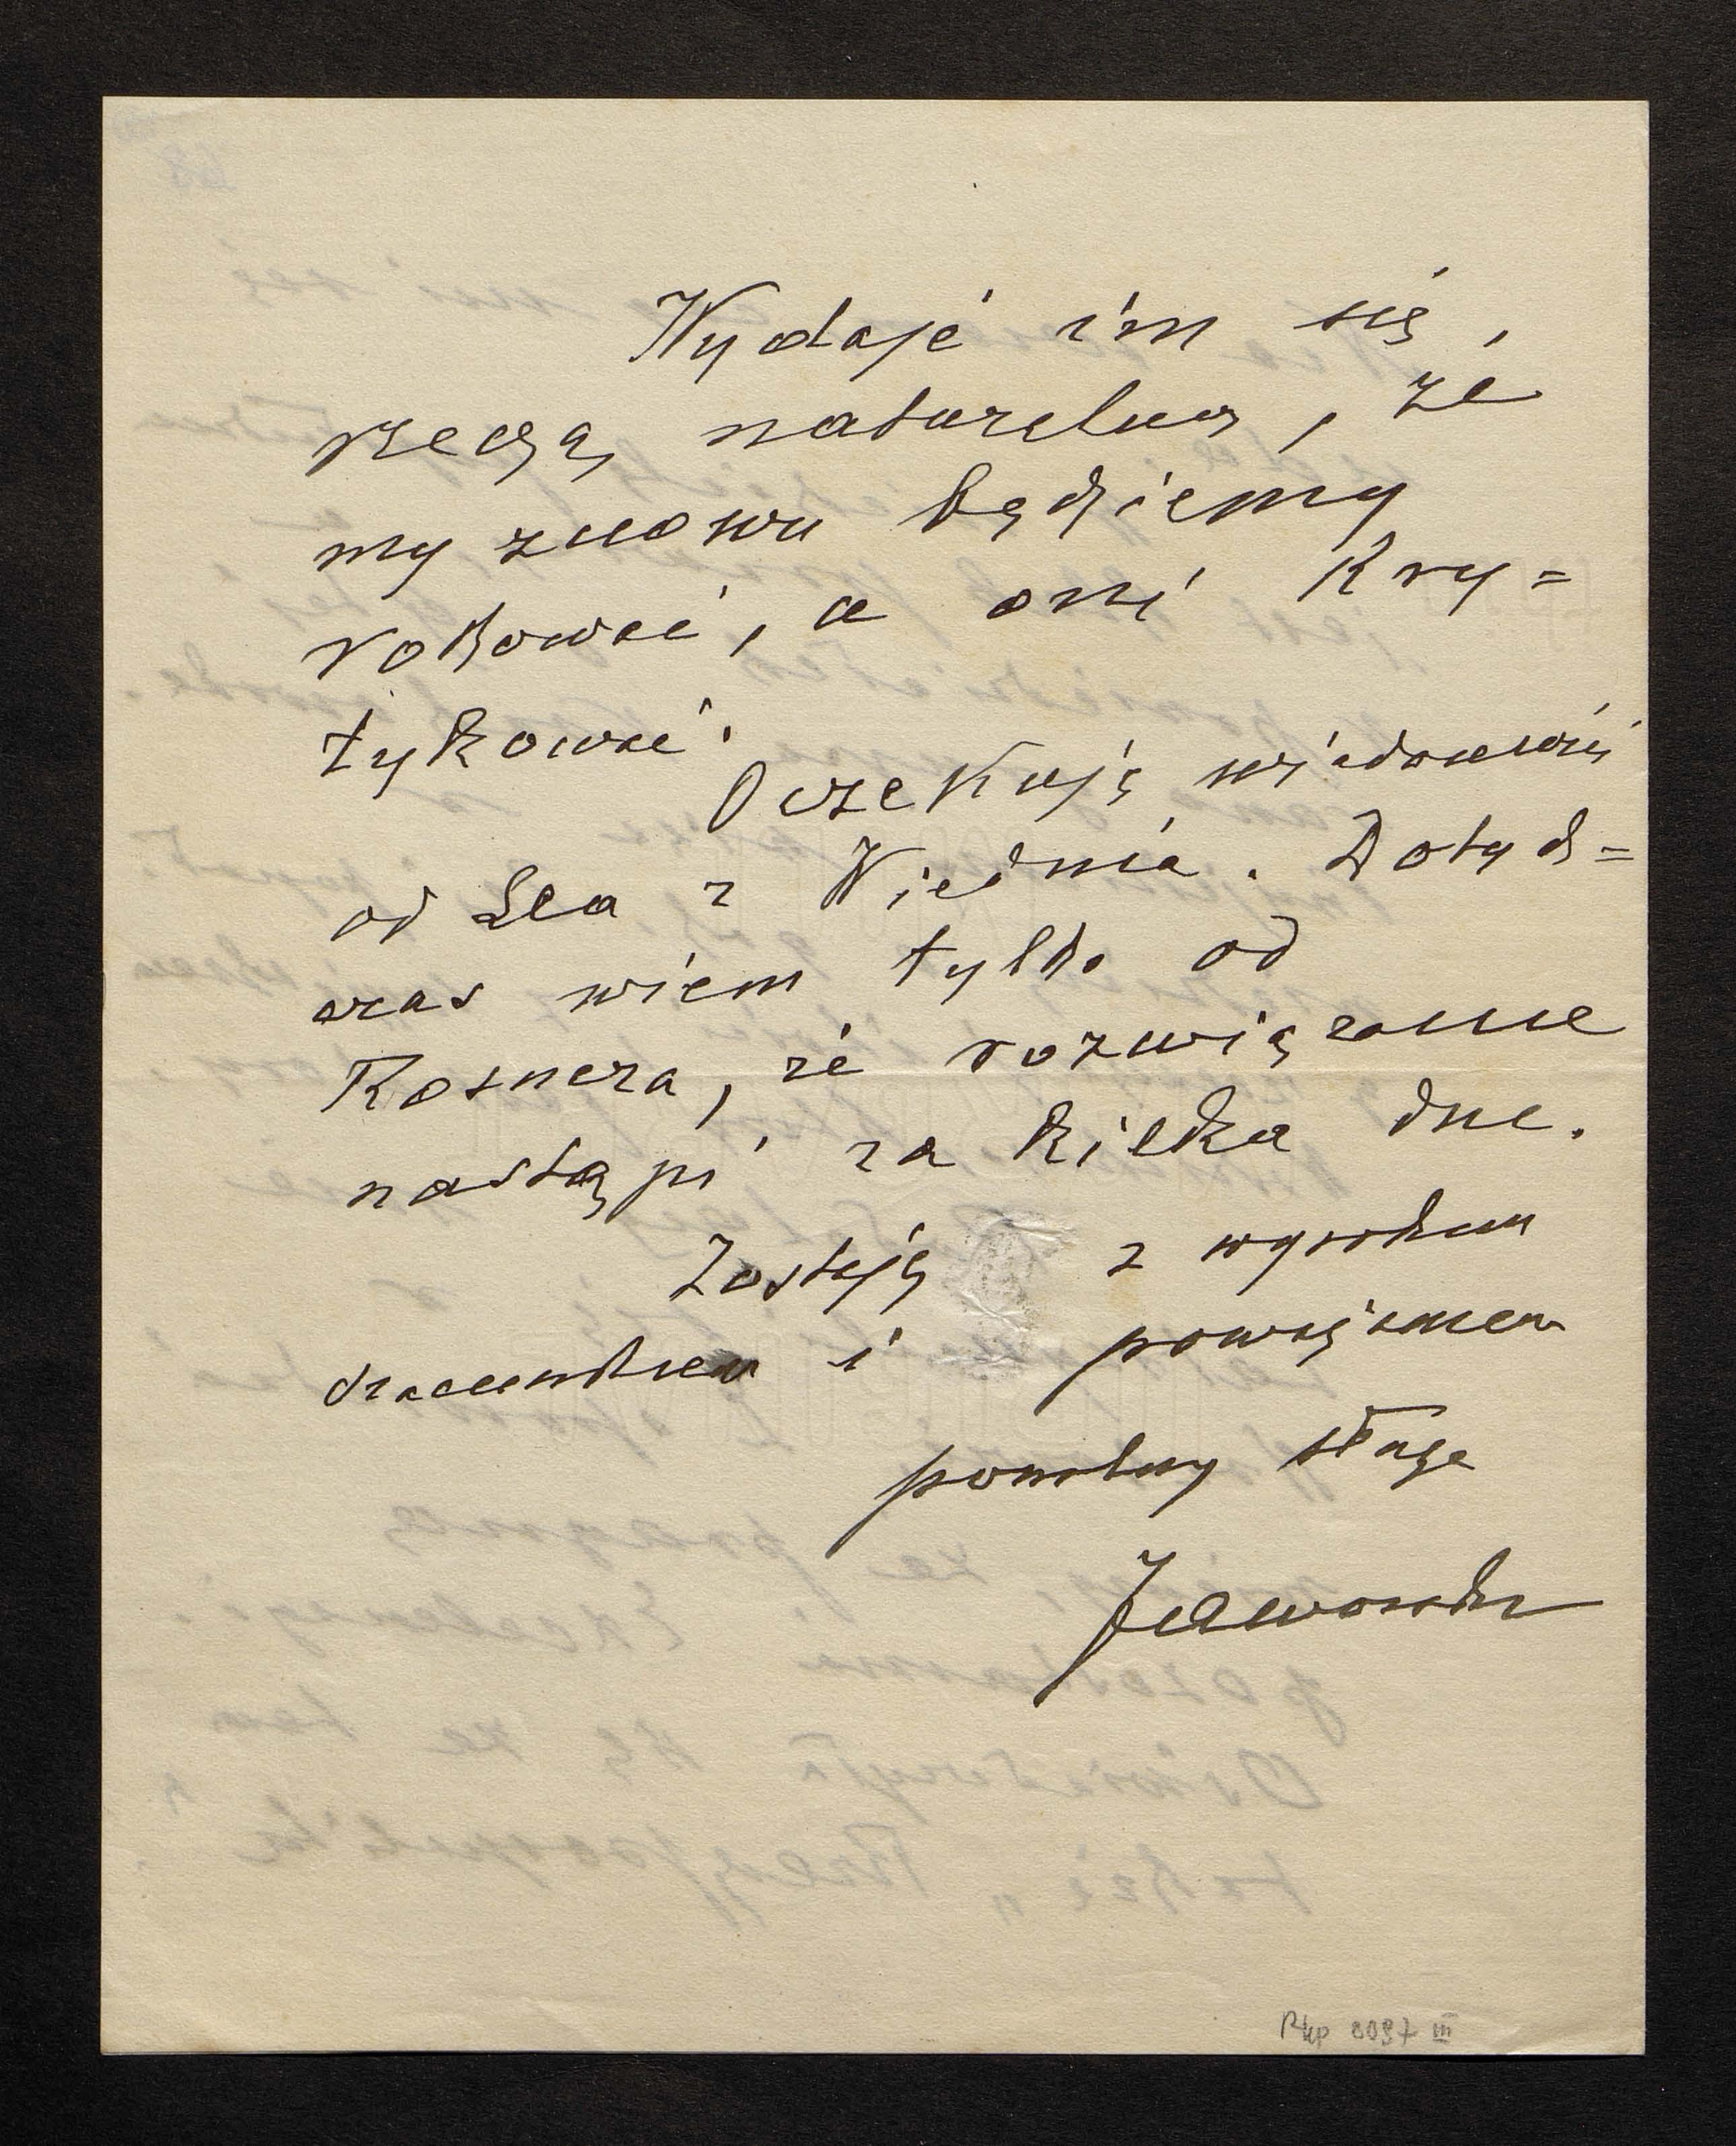 Wydaje im się,
rzeczą naturalną, że
my znowu będziemy
robować, a oni kry=
tykować.
Oczekuję wiadomości
od Lea z Wiednia. Dotych=
czas wiem tylko od
Rosnera, że rozwiązanie
nastąpi za kilka dni.
Zostaję z wysokim
szacunkiem i poważaniem
powolny sługa
Jaworski
Rkp 8097 III